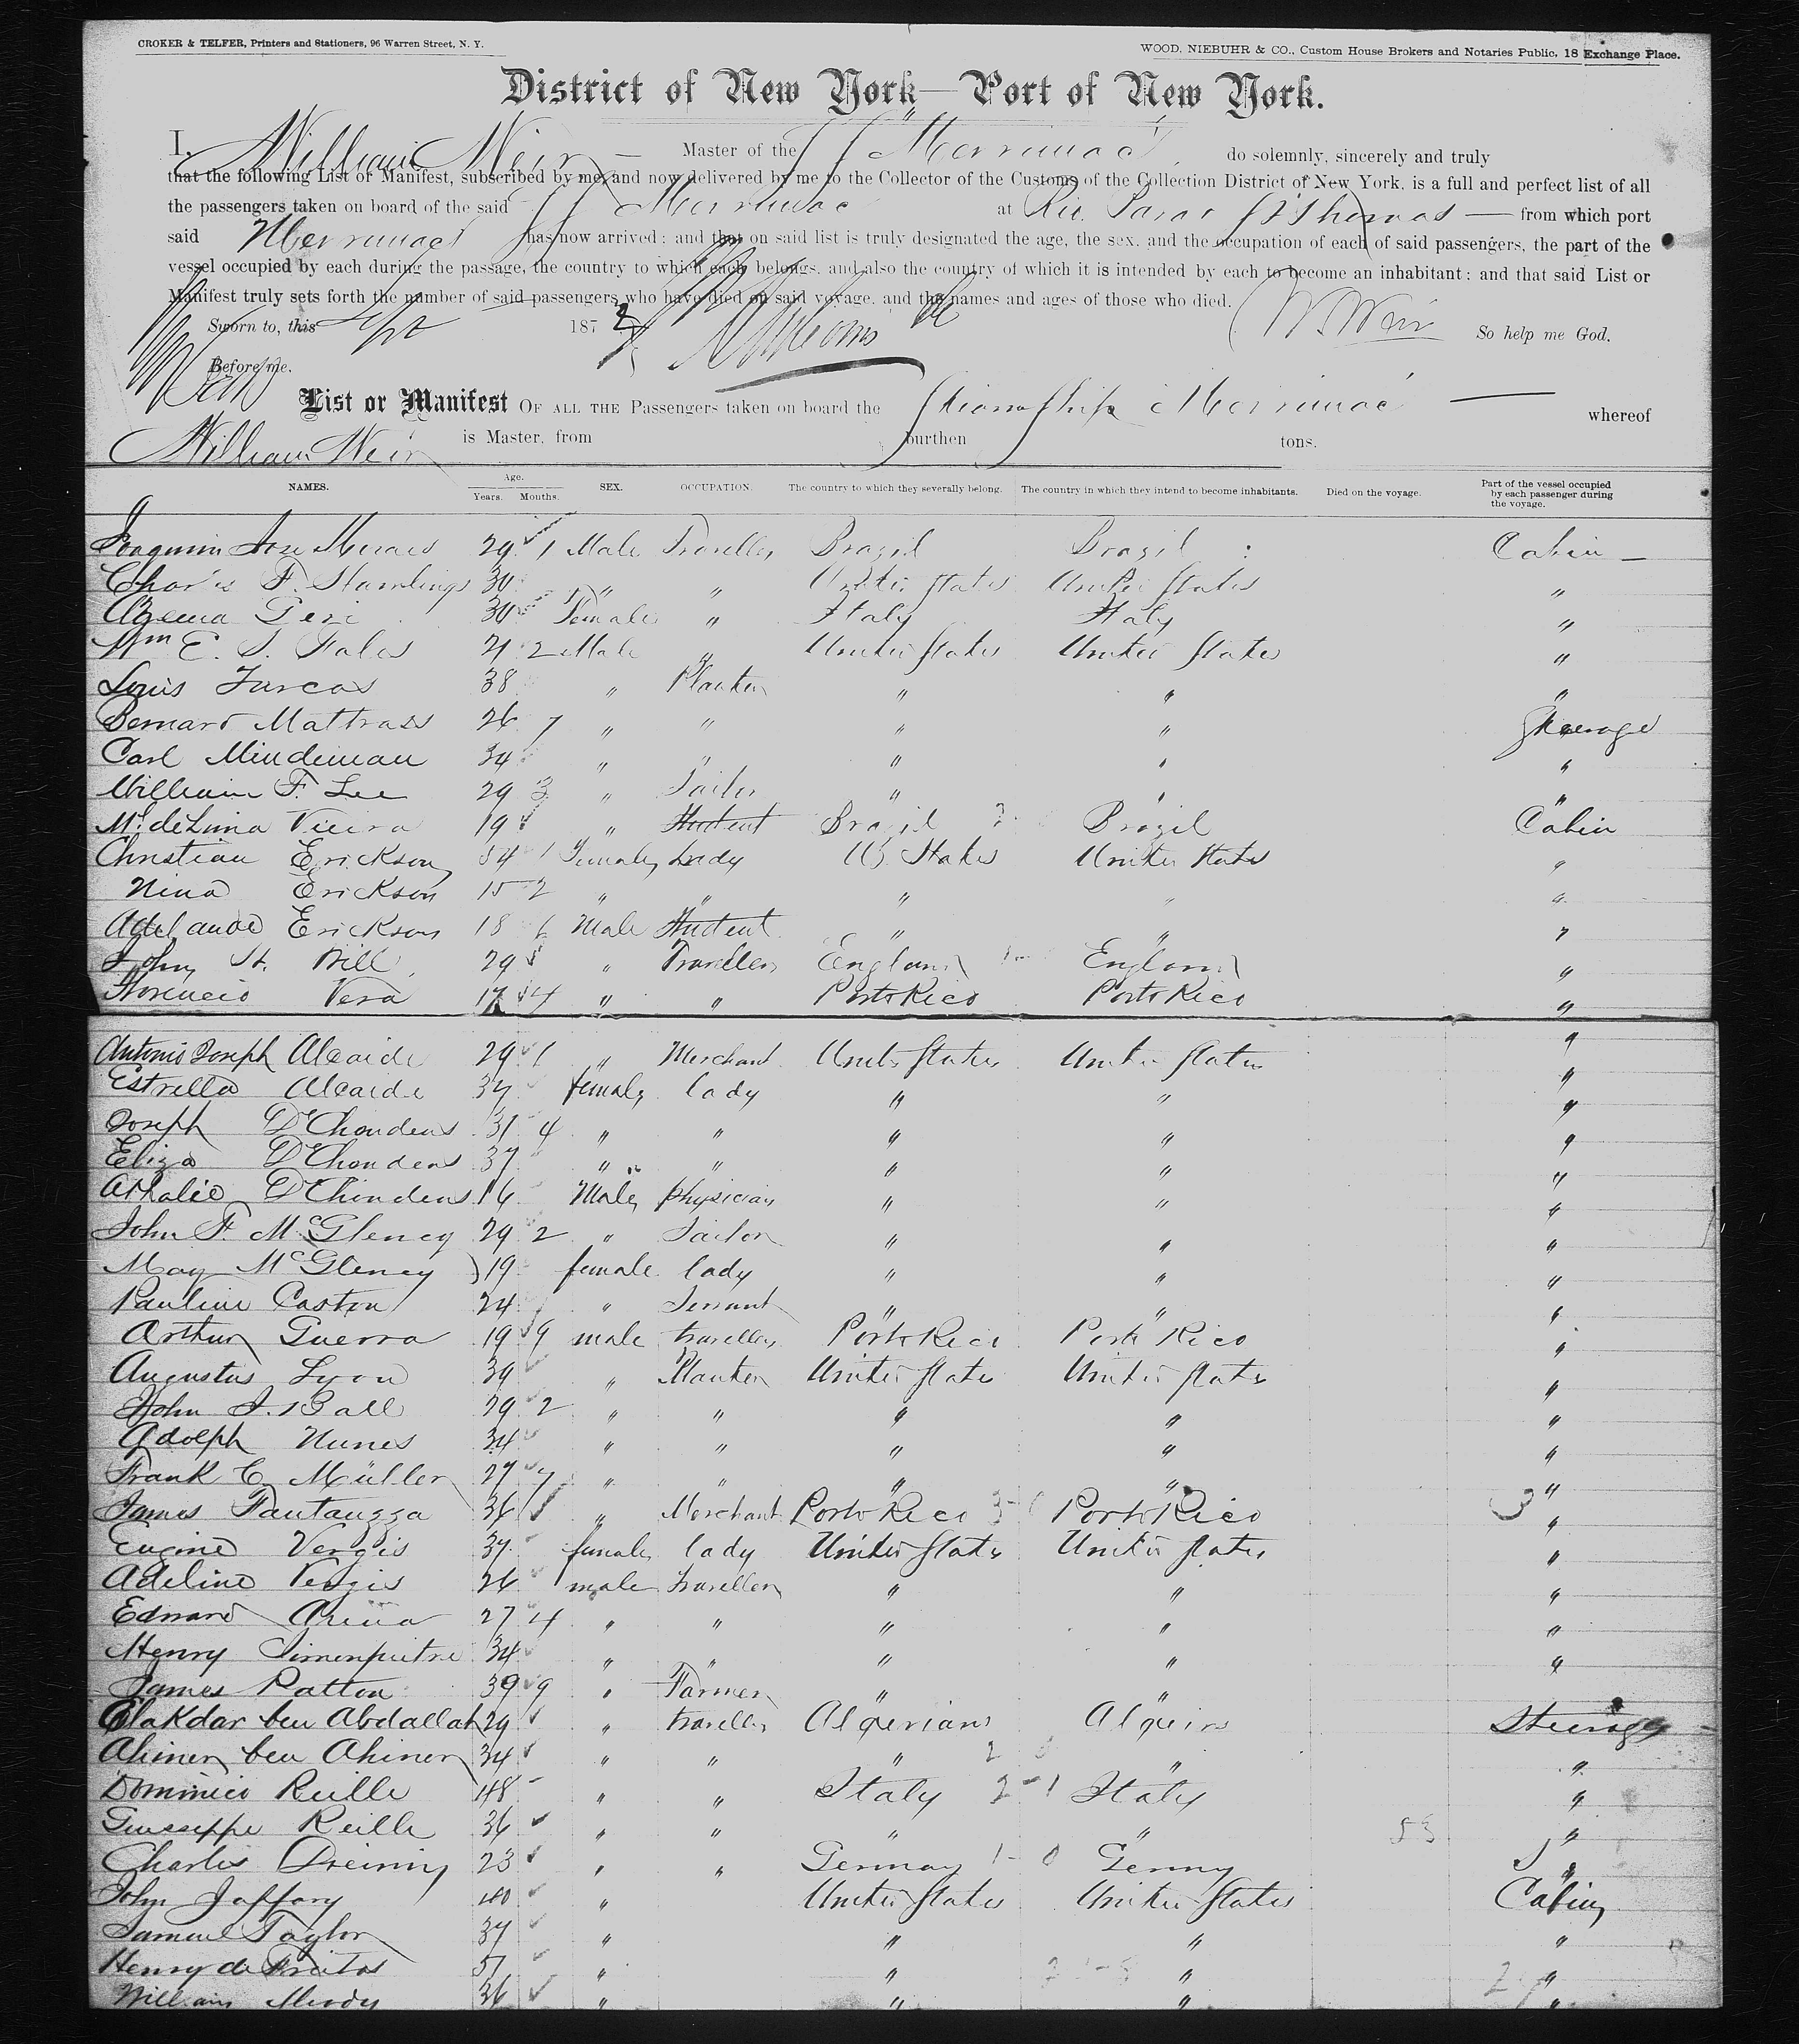 CROKER & TELFER, Printers and Stationers, 96 Warren Street, N. Y.
WOOD, NIEBUHR & CO., Custom House Brokers and Notaries Public, 18 Exchange Place.
District of New York—Port of New York.
I, William Weir — Master of the SS Merrimac, do solemnly, sincerely and truly
that the following List or Manifest, subscribed by me, and now delivered by me to the Collector of the Customs of the Collection District of New York, is a full and perfect list of all
the passengers taken on board of the said SS Merrimac at Rio Para St Thomas — from which port
said Merrimac has now arrived; and that on said list is truly designated the age, the sex, and the occupation of each of said passengers, the part of the
vessel occupied by each during the passage, the country to which each belongs, and also the country of which it is intended by each to become an inhabitant; and that said List or
Manifest truly sets forth the number of said passengers who have died on said voyage, and the names and ages of those who died.
Sworn to, this Sept 187 W. Weir So help me God.
Before me,
List or Manifest OF ALL THE Passengers taken on board the Steam Ship Merrimac — whereof
William Weir is Master, from burthen tons.
NAMES. Age. Years. Months. SEX. OCCUPATION. The country to which they severally belong. The country in which they intend to become inhabitants. Died on the voyage. Part of the vessel occupied by each passenger during the voyage.
Joaquim Jose Moraes 29 1 Male Traveller Brazil Brazil Cabin
F. 30 " " United States United States "
30 Female " Italy Italy "
Wm E. S. Fales 21 2 Male " United States United States "
Louis Farcas 38 " Planter " " "
Bernard Mattrass 26 7 " " " " Steerage
Carl Mindeman 34 " " " " "
William F. Lee 29 3 " Sailor " " "
M. de Lima Vieira 19 " Student Brazil Brazil Cabin
Christian Erickson 34 1 Female Lady U. States United States "
Nina Erickson 15 2 " " " " "
Erickson 18 6 Male Student " " "
John H. Bill 29 " Traveller England England "
Florencio Vera 17 4 " " Porto Rico Porto Rico "
Antonio Joseph Alcaide 29 1 " Merchant United States United States "
Estrella Alcaide 37 female lady " " "
Joseph D'Choudens 31 4 " " " " "
Eliza D'Choudens 37 " " " " "
Athalie D'Choudens 16 Male physician " " "
John F. McGlency 29 2 " Sailor " " "
May McGlency 19 female lady " " "
Pauline Caston 24 " Servant " " "
Arthur Guerra 19 9 male traveller Porto Rico Porto Rico "
Augustus Lyon 39 " Planter United States United States "
John J. Ball 29 2 " " " " "
Adolph Nunes 34 " " " " "
Frank C. Müller 27 7 " " " " "
James Pantauzza 36 " Merchant Porto Rico 3 Porto Rico "
Eugine Vergis 37 female lady United States United States "
Adeline Vergis 26 male traveller " " "
Edward 27 4 " " " " "
Henry Simonpietri 34 " " " " "
James Patton 39 9 " Farmer " " "
Elakdar ben Abdallah 29 " traveller Algerian Algeirs Steerage
Ahmer ben Ahmer 34 " " " 2 " "
Dominico Reille 48 " " Italy 2 - 1 Italy "
Giusseppe Reille 36 " " " " 53 "
Charles 23 " " Germay 1 - 0 Germy "
John Jaffary 40 " United States United States Cabin
Samuel Taylor 37 " " " "
Henry de Freitas 57 " " " "
William Moody 36 " " " "